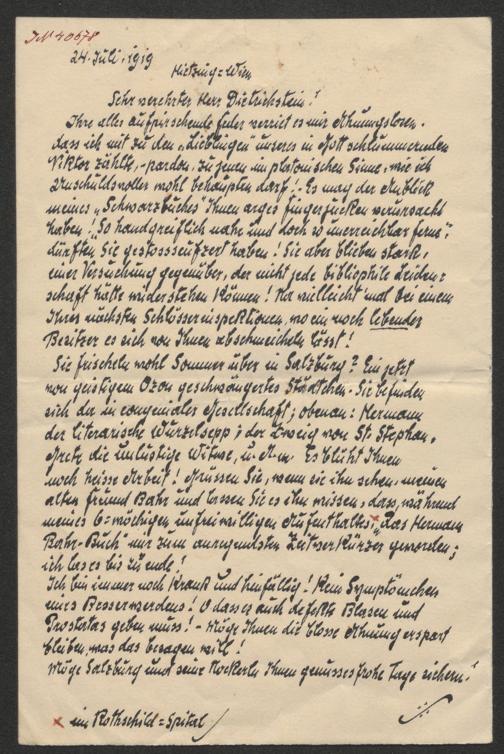 J.N 40678
24. Juli, 1919
Hietzing=Wien
Sehr verehrter Herr Dietrichstein!
Ihre alles aufpirschende Feder verriet es mir Ahnungslosen.
dass ich mit zu den "Lieblingen" unseres in Gott schlummernden
Viktor zählte, - pardon, zu jenen im platonischen Sinne, wie ich
unschuldsvoller wohl behaupten darf! - Es mag der Anblick
meines "Schwarzbuches" Ihnen arges Fingerjucken verursacht
haben! "So handgreiflich nahe und doch so unerreichbar ferne",
dürften Sie gestossseufzert haben! Sie aber blieben stark,
einer Versuchung gegenüber, der nicht jede bibliophile Leiden=
schaft hätte widerstehen können! Nur vielleicht 'mal bei einem
Ihrer nächsten Schlösserinspektionen, wo ein noch lebender
Besitzer es sich von Ihnen abschmeicheln lässt!
Sie frischeln wohl Sommer über in Salzburg? Ein jetzt
von geistigem Ozon geschwängertes Städtchen. Sie befinden
sich da in congenialer Gesellschaft; obenan: Hermann
der literarische Wurzelsepp; der Zweig von St. Stephan,
die unlustige Witwe, u. A. m. Es blüht Ihnen
noch heisse Arbeit! Grüssen Sie, wenn sie ihn sehen, meinen
alten Freund Bahr und lassen Sie es ihn wissen, dass, während
meines 6=wöchigen unfreiwilligen Aufenthaltes x "das Hermann
Bahr-Buch" mir zum anregendsten Zeitverkürzer geworden;
ich las es bis zu ende!
Ich bin immer noch krank und hinfällig! Kein Symptömchen
eines Besserwerdens! O dass es auch defekte Blasen und
Prostatas geben muss! - Möge Ihnen die blosse Ahnung erspart
bleiben, was das besagen will!
Möge Salzburg und seine Nockerln Ihnen genussesfrohe Tage sichern!
x im Rothschild=Spital